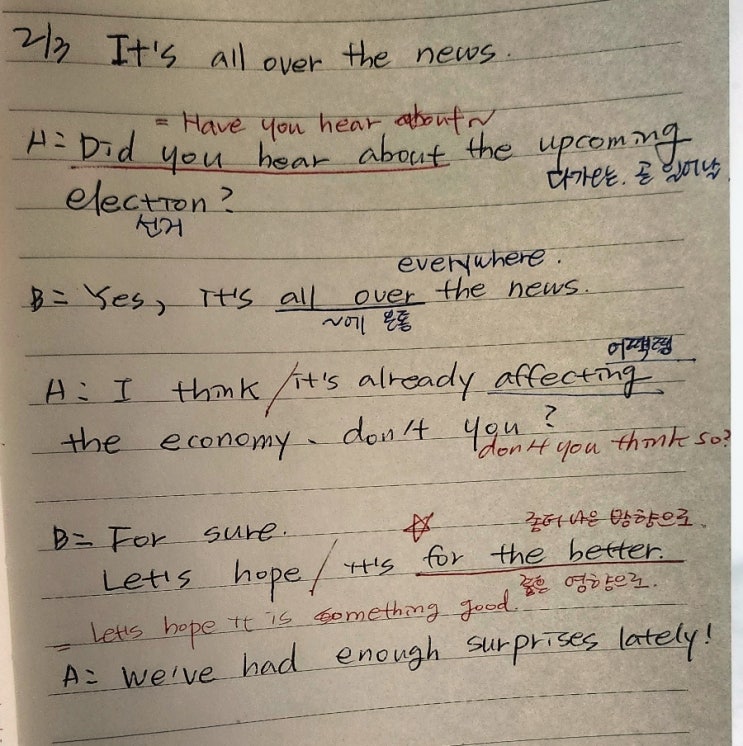 2/3 It's all over the news.
= Have you hear about ~
A= Did you hear about the upcoming
다가오는. 곧 일어날
election?
선거
everywhere.
B= Yes, it's all over the news.
~에 온통
A: I think / it's already affecting
the economy. don't you?
don't you think so?
B= For sure.
좀더 나은 방향으로.
Let's hope / it's for the better.
좋은 영향으로.
= Let's hope it is something good.
A= We've had enough surprises lately!